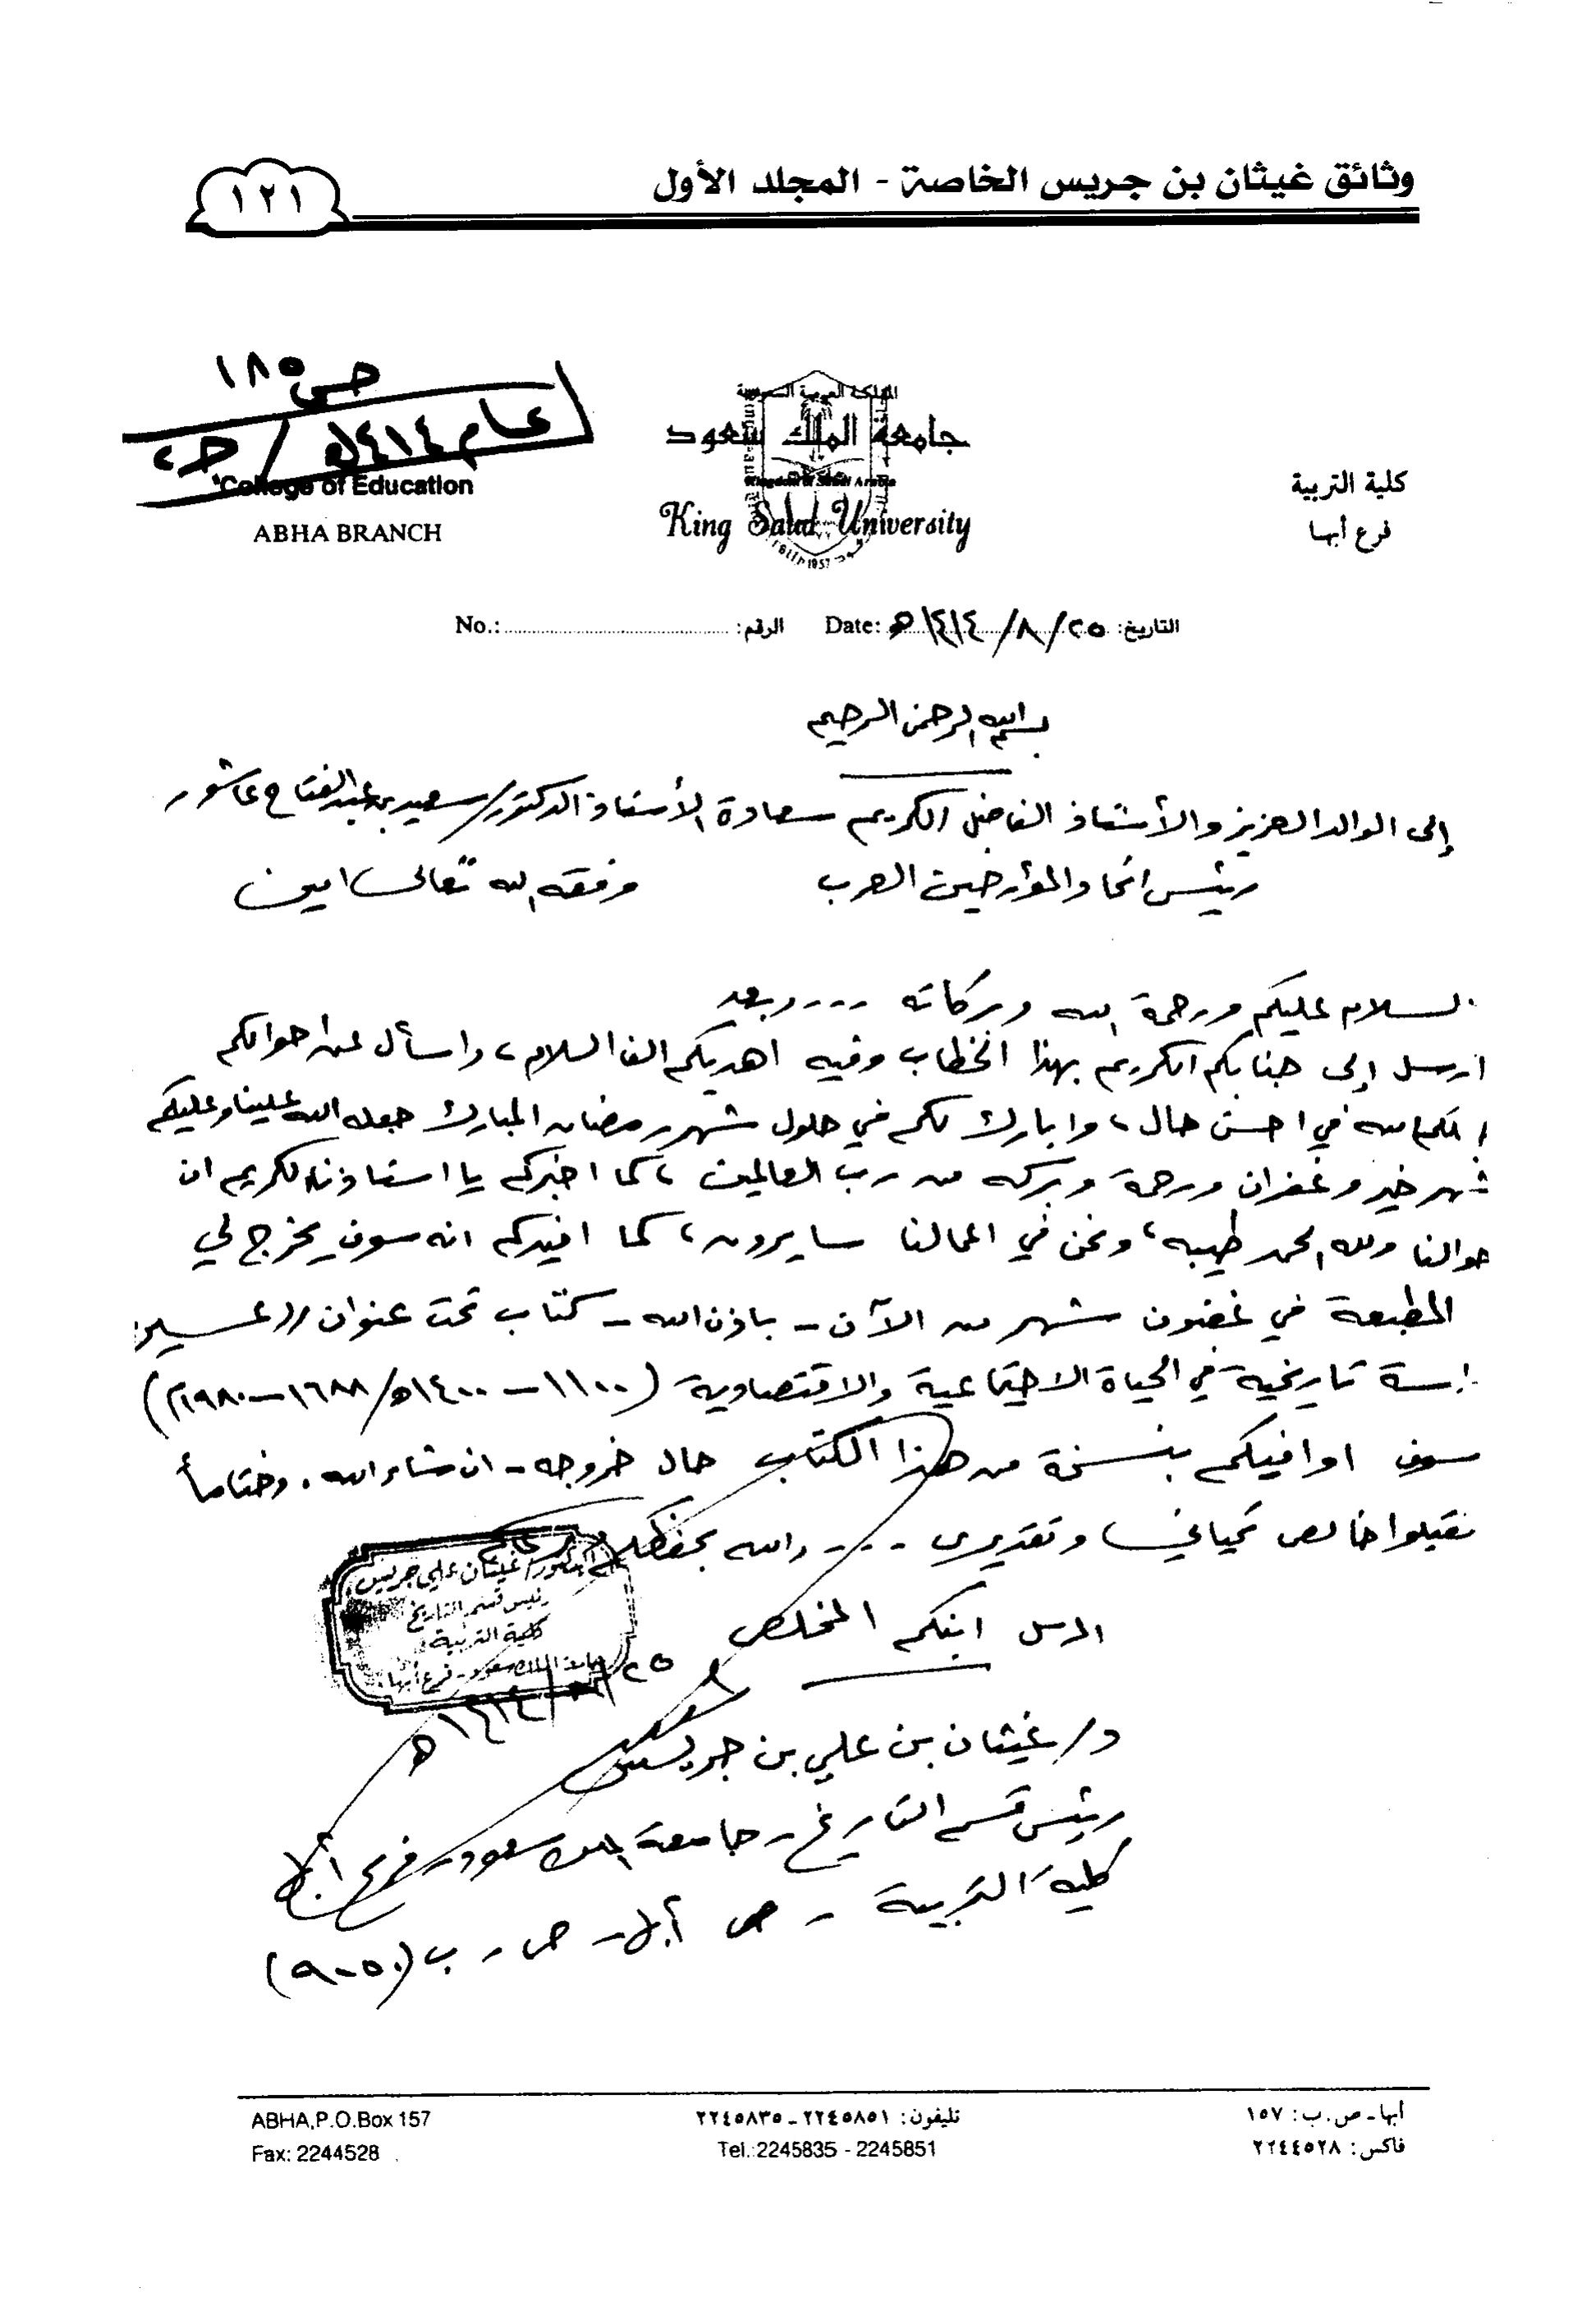 وثائق غيثان بن جريس الخاصة - المجلد الأول
١٢١
ص ١٨٥
عام ١٤١٤هـ / ج٢
College of Education
ABHA BRANCH
المملكة العربية السعودية
جامعة الملك سعود
Kingdom of Saudi Arabia
King Saud University
1957
كلية التربية
فرع أبها
التاريخ: ٢٥/٨/١٤١٤هـ Date: الرقم: No.:
بسم الله الرحمن الرحيم
إلى الوالد العزيز والأستاذ الفاضل الكريم سعادة الأستاذ الدكتور/ سعيد بن عبد الفتاح عاشور
رئيس اتحاد المؤرخين العرب وفقه الله تعالى امين
السلام عليكم ورحمة الله وبركاته ---- وبعد
ارسل إلى جنابكم الكريم بهذا الخطاب وفيه اهديكم الف السلام، واسأل عن احوالكم
في احسن حال، وابارك لكم في حلول شهر رمضان المبارك جعله الله علينا وعليكم
شهر خير وغفران ورحمة وبركه من رب العالمين، كما اخبركم يا استاذنا الكريم ان
حوالنا ولله الحمد طيبه، ونحن في اعمالنا سايرون، كما افيدكم انه سوف يخرج لي
المطبعة في غضون شهر من الآن - باذن الله - كتاب تحت عنوان ((عسير:
اسة تاريخية في الحياة الاجتماعية والاقتصادية (١١٠٠ - ١٤٠٠هـ/ ١٦٨٨ - ١٩٨٠م)
سوف اوافيكم بنسخة من هذا الكتاب حال خروجه - ان شاء الله. وختاماً
تقبلوا خالص تحياتي وتقديري ---- والله يحفظكم ويرعاكم
المرسل ابنكم المخلص
الدكتور/ غيثان علي جريس
رئيس قسم التاريخ
كلية التربية
جامعة الملك سعود - فرع أبها
٢٥/٨/١٤١٤هـ
د/ غيثان بن علي بن جريس
رئيس قسم التاريخ - جامعة الملك سعود - فرع أبها
كلية التربية - أبها - ص. ب (٩٠٥٠)
أبها - ص. ب: ١٥٧
فاكس: ٢٢٤٤٥٢٨
تليفون: ٢٢٤٥٨٥١ - ٢٢٤٥٨٣٥
Tel.:2245835 - 2245851
ABHA,P.O.Box 157
Fax: 2244528